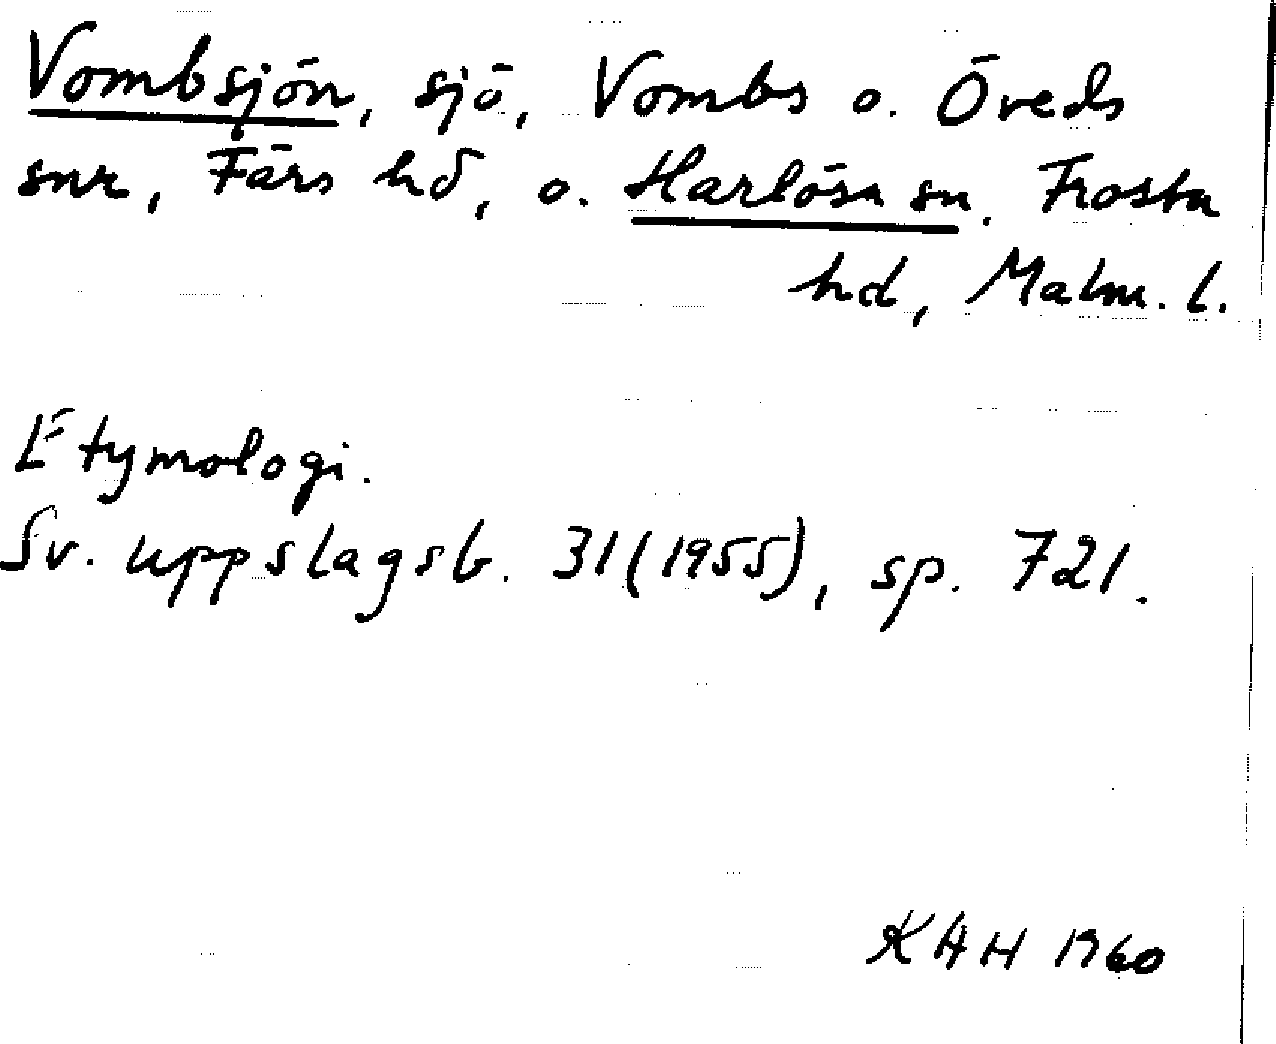 Vombsjön, sjö, Vombs o. Öveds
snr, Färs hd, o. Harlösa sn, Frosta
hd, Malm. l.
Etymologi.
Sv. uppslagsb. 31 (1955), sp. 721.
KAH 1960